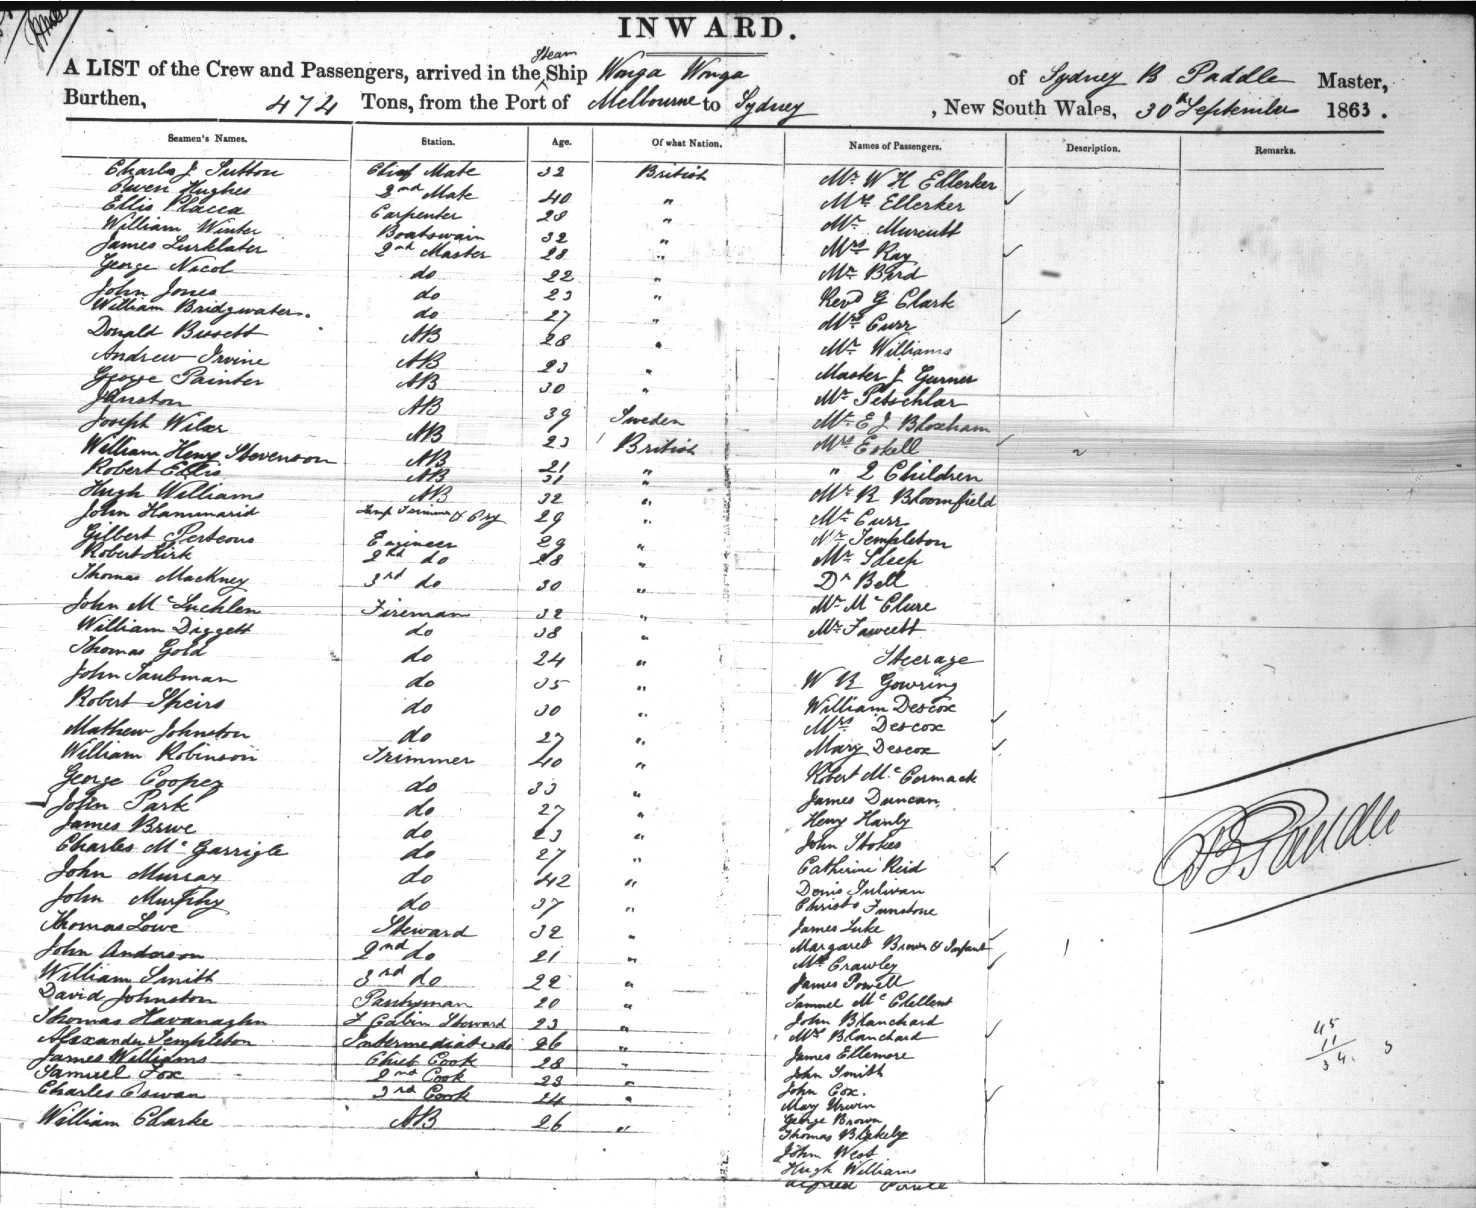 INWARD.
Steam
A LIST of the Crew and Passengers, arrived in the Ship Wonga Wonga of Sydney B Paddle Master,
Burthen, 474 Tons, from the Port of Melbourne to Sydney , New South Wales, 30th September 1863.
Seamen's Names. Station. Age. Of what Nation. Names of Passengers. Description. Remarks.
Charles J Sutton Chief Mate 32 British Mr W H Ellerker
Owen Hughes 2nd Mate 40 " Mrs Ellerker
Ellis Carpenter 28 " Mr Murcutt
William Winter Boatswain 32 " Mrs Ray
James 2nd Master 28 " Mr Bird
George Nicol do 22 " Revd G Clark
John Jones do 23 " Mrs Curr
William Bridgwater. do 27 " Mr Williams
Donald Bissett AB 28 " Master J Gurner
Andrew Irvine AB 23 " Mr Petschlar
George Painter AB 30 " Mr E J Bloxham
AB 39 Sweden Mrs Eskell
Joseph AB 23 British " 2 Children
William Henry Stevenson AB 21 " Mr R Bloomfield
Robert Ellis AB 31 " Mr Curr
Hugh Williams AB 32 " Mr Templeton
John 29 " Mr Sleep
Gilbert Engineer 29 " Dr Bell
Robert Kirk 2nd do 28 " Mr McClure
Thomas Mackney 3rd do 30 " Mr Fawcett
John McLachlen Fireman 32 " Steerage
William Diggett do 38 " W R Gowring
Thomas Gold do 24 " William Descox
John Taubman do 35 " Mrs Descox
Robert Speirs do 30 " Mary Descox
Mathew Johnston do 27 " Robert McCormack
William Robinson Trimmer 40 " James Duncan
George Cooper do 33 " Henry Hanly
John Park do 27 " John Stokes
James do 23 " Catherine Reid
Charles McGarrigle do 27 " Denis Sulivan
John Murray do 42 " Funstone
John Murphy do 37 " James Luke
Thomas Lowe Steward 32 " Margaret Brown & Infant
John Anderson 2nd do 21 " Crawley
William Smith 3rd do 22 " James Powell
David Johnston Pantryman 20 " Samuel McClellent
Thomas Kavanaghn F Cabin Steward 23 " John Blanchard
Alexander Templeton Intermediate do 26 " Mrs Blanchard
James Williams Chief Cook 28 " James Ellemore
Samuel Fox 2nd Cook 23 " John Smith
Charles 3rd Cook 24 " John Cox.
William Clarke AB 26 " Mary Urwin
George Brown
Thomas Blakely
John West
Hugh Williams
Alfred
B Paddle
45
11
34.